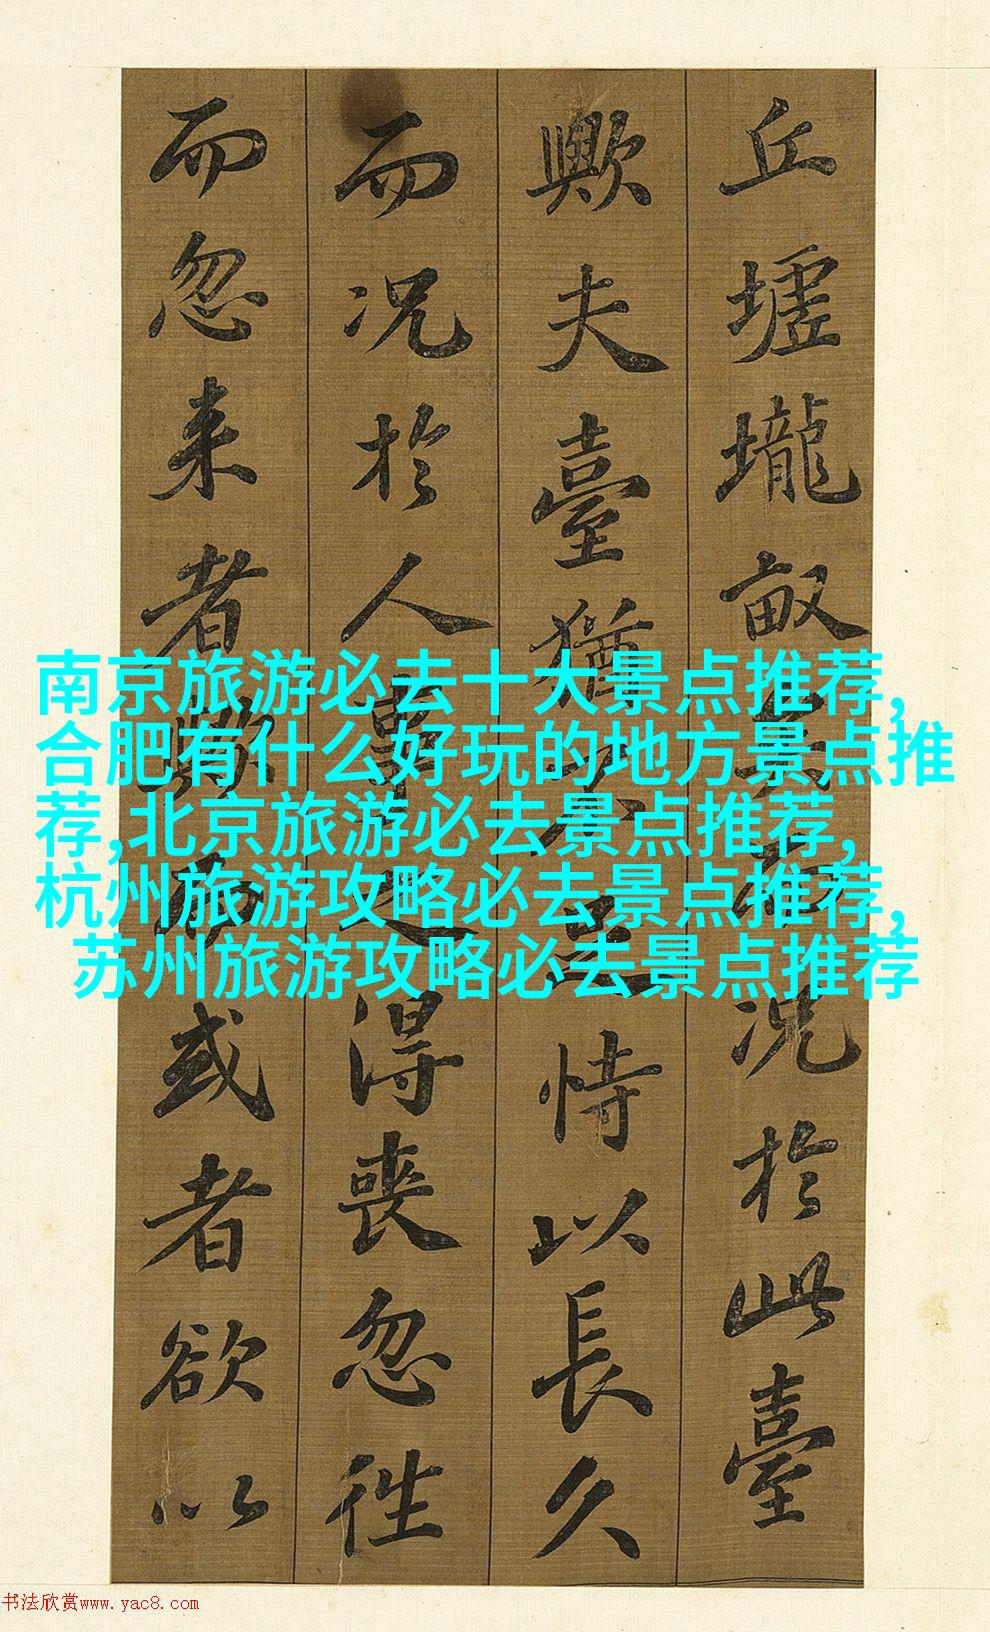 丘墟壠畝矣而况於此臺
歟夫臺猶不足恃以長久
而况於人事之得喪忽往
而忽来者歟而或者欲以
南京旅游必去十大景点推荐,
合肥有什么好玩的地方景点推
荐,北京旅游必去景点推荐,
杭州旅游攻略必去景点推荐,
苏州旅游攻略必去景点推荐
书法欣赏www.yac8.com